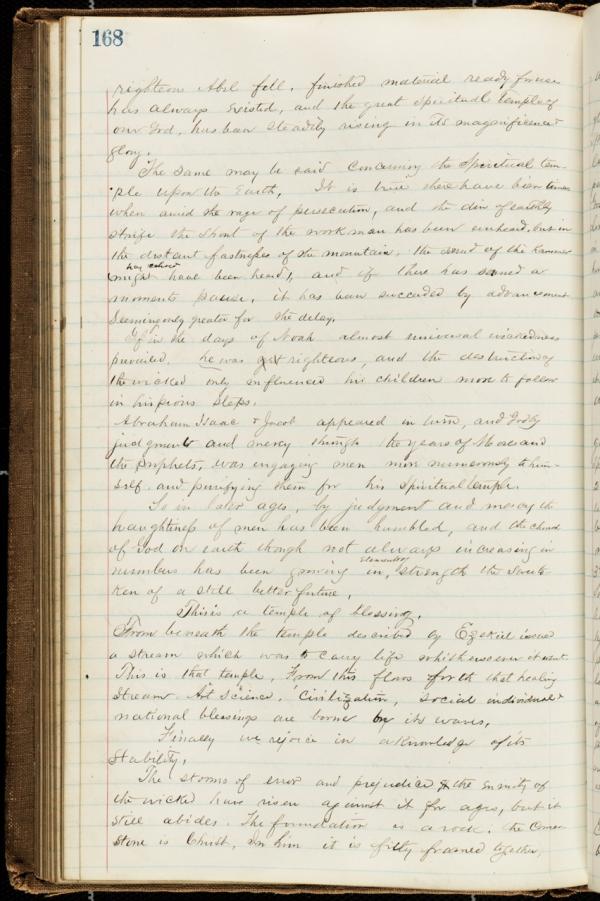 168
righteous Abel fell, finished material ready for use
has always existed, and the great spiritual temple of
our God, has been steadily rising in its magnificent
glory.
The same may be said concerning the Spiritual tem-
ple upon the Earth, It is true there have been times
when amid the rage of persecution, and the din of earthly
strife the shout of the workman has been unheard, but in
the distant fastnesses of the mountain, the sound of the hammer
may
might have been heard, and if there has seemed a
moments pause, it has been succeeded by advancement
seemingly greater for the delay.
If in the days of Noah almost universal wickedness
prevailed, he was yet righteous, and the destruction of
the wicked only influenced his children more to follow
in his pious steps.
Abraham Isaac & Jacob appeared in turn, and Godly
judgment and mercy through the years of Moses and
the prophets, was engaging men more numerously to him-
self and purifying them for his Spiritual temple.
So in later ages, by judgment and mercy the
haughtiness of men has been humbled, and the church
of God on earth though not always increasing in
numbers has been growing in, strength the sure to-
ken of a still better future,
This is a temple of blessing,
From beneath the temple described by Ezekiel issued
a stream which was to carry life whithersoever it went.
This is that temple, From this flows forth that healing
stream. Art Science, Civilization, social individual &
national blessings are borne by its waves,
Finally we rejoice in a knowledge of its
stability,
The storms of error and prejudice & the enmity of
the wicked have risen against it for ages, but it
still abides. The foundation is a rock; the Corner
Stone is Christ, In him it is fitly framed together,